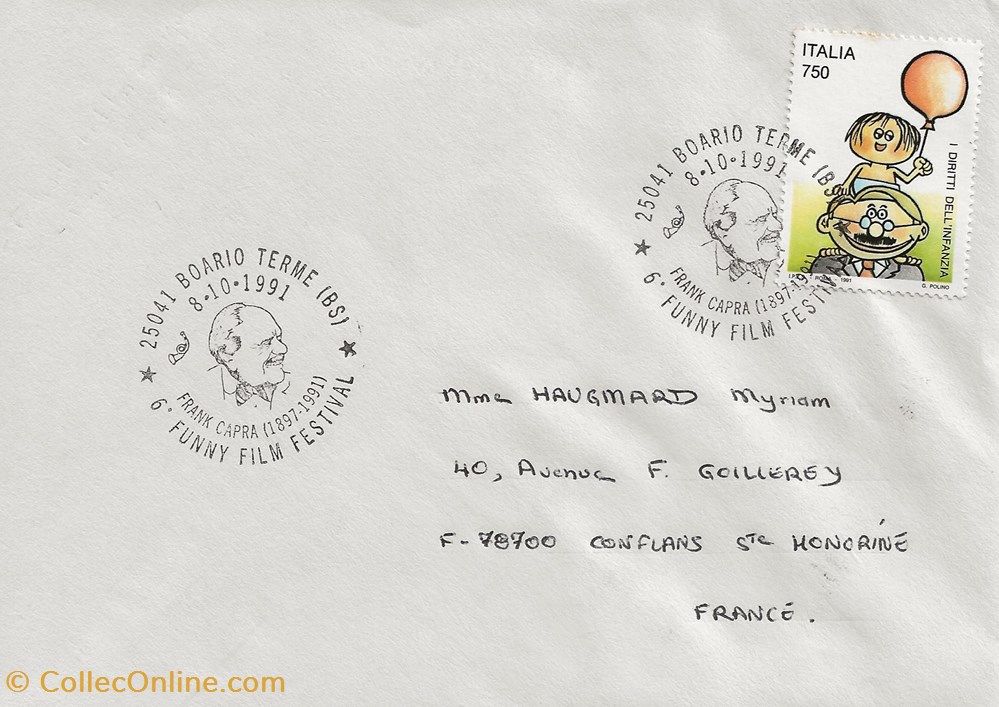 ITALIA
750
I DIRITTI DELL'INFANZIA
ROMA - 1991
G. POLINO
25041 BOARIO TERME (BS)
8-10-1991
FRANK CAPRA (1897-1991)
6° FUNNY FILM FESTIVAL
25041 BOARIO TERME (BS)
8-10-1991
FRANK CAPRA (1897-1991)
6° FUNNY FILM FESTIVAL
Mme HAUGMARD Myriam
40, Avenue F. GOILLEREY
F-78700 CONFLANS Ste HONORINE
FRANCE.
© CollecOnline.com